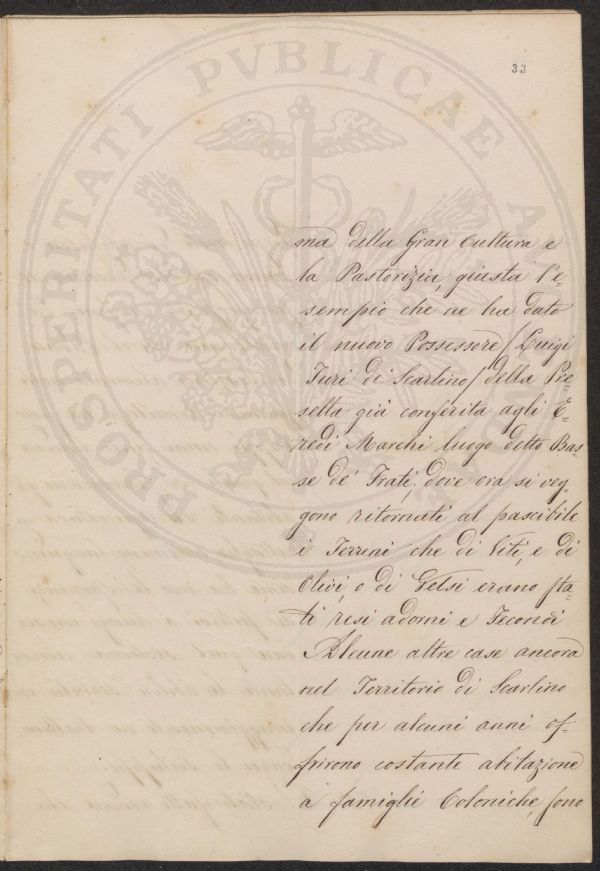 33
ma della Gran Cultura e
la Pastorizia, giusta l'e=
sempio che ne ha dato
il nuovo Possessore /Luigi
Turi di Scarlino/ della Pre=
sella già conferita agli E=
redi Marchi luogo detto Bas=
se de' Frati, dove ora si veg=
gono ritornati al pascibile
i Terreni che di Viti, e di
Olivi, o di Gelsi erano sta=
ti resi adorni e Fecondi
Alcune altre case ancora
nel Territorio di Scarlino
che per alcuni anni of=
frirono costante abitazione
a famiglie Coloniche, sono
PROSPERITATI PVBLICAE